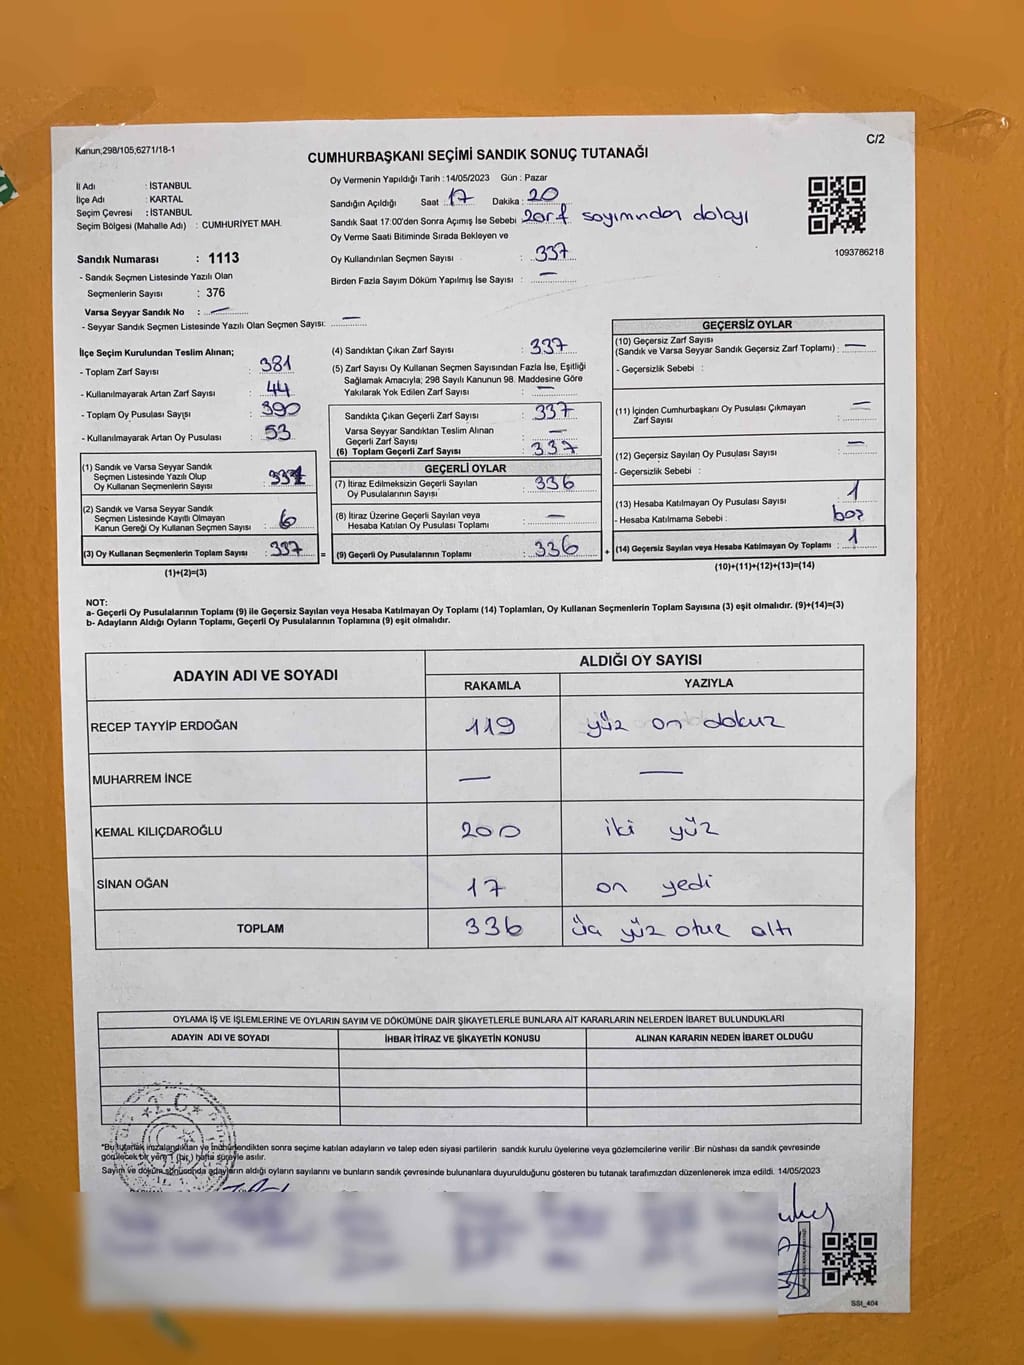 Kanun;298/105,6271/18-1
C/2
CUMHURBAŞKANI SEÇİMİ SANDIK SONUÇ TUTANAĞI
İl Adı : İSTANBUL
İlçe Adı : KARTAL
Seçim Çevresi : İSTANBUL
Seçim Bölgesi (Mahalle Adı) : CUMHURİYET MAH.
Sandık Numarası : 1113
- Sandık Seçmen Listesinde Yazılı Olan
Seçmenlerin Sayısı : 376
Varsa Seyyar Sandık No : —
- Seyyar Sandık Seçmen Listesinde Yazılı Olan Seçmen Sayısı: —
Oy Vermenin Yapıldığı Tarih : 14/05/2023 Gün : Pazar
Sandığın Açıldığı Saat : 17 Dakika : 20
Sandık Saat 17:00'den Sonra Açımış İse Sebebi : zarf sayımından dolayı
Oy Verme Saati Bitiminde Sırada Bekleyen ve
Oy Kullandırılan Seçmen Sayısı : 337
Birden Fazla Sayım Döküm Yapılmış İse Sayısı : —
1093786218
İlçe Seçim Kurulundan Teslim Alınan;
- Toplam Zarf Sayısı : 381
- Kullanılmayarak Artan Zarf Sayısı : 44
- Toplam Oy Pusulası Sayısı : 390
- Kullanılmayarak Artan Oy Pusulası : 53
(1) Sandık ve Varsa Seyyar Sandık
Seçmen Listesinde Yazılı Olup
Oy Kullanan Seçmenlerin Sayısı :
(2) Sandık ve Varsa Seyyar Sandık
Seçmen Listesinde Kayıtlı Olmayan
Kanun Gereği Oy Kullanan Seçmen Sayısı : 6
(3) Oy Kullanan Seçmenlerin Toplam Sayısı : 337 =
(1)+(2)=(3)
(4) Sandıktan Çıkan Zarf Sayısı : 337
(5) Zarf Sayısı Oy Kullanan Seçmen Sayısından Fazla İse, Eşitliği
Sağlamak Amacıyla; 298 Sayılı Kanunun 98. Maddesine Göre
Yakılarak Yok Edilen Zarf Sayısı : —
Sandıkta Çıkan Geçerli Zarf Sayısı : 337
Varsa Seyyar Sandıktan Teslim Alınan
Geçerli Zarf Sayısı : —
(6) Toplam Geçerli Zarf Sayısı : 337
GEÇERLİ OYLAR
(7) İtiraz Edilmeksizin Geçerli Sayılan
Oy Pusulalarının Sayısı : 336
(8) İtiraz Üzerine Geçerli Sayılan veya
Hesaba Katılan Oy Pusulası Toplamı : —
(9) Geçerli Oy Pusulalarının Toplamı : 336 +
GEÇERSİZ OYLAR
(10) Geçersiz Zarf Sayısı
(Sandık ve Varsa Seyyar Sandık Geçersiz Zarf Toplamı) : —
- Geçersizlik Sebebi :
(11) İçinden Cumhurbaşkanı Oy Pusulası Çıkmayan
Zarf Sayısı : —
(12) Geçersiz Sayılan Oy Pusulası Sayısı : —
- Geçersizlik Sebebi :
(13) Hesaba Katılmayan Oy Pusulası Sayısı : 1
- Hesaba Katılmama Sebebi : boş
(14) Geçersiz Sayılan veya Hesaba Katılmayan Oy Toplamı : 1
(10)+(11)+(12)+(13)=(14)
NOT:
a- Geçerli Oy Pusulalarının Toplamı (9) ile Geçersiz Sayılan veya Hesaba Katılmayan Oy Toplamı (14) Toplamları, Oy Kullanan Seçmenlerin Toplam Sayısına (3) eşit olmalıdır. (9)+(14)=(3)
b- Adayların Aldığı Oyların Toplamı, Geçerli Oy Pusulalarının Toplamına (9) eşit olmalıdır.
ADAYIN ADI VE SOYADI
ALDIĞI OY SAYISI
RAKAMLA YAZIYLA
RECEP TAYYİP ERDOĞAN 119 yüz on dokuz
MUHARREM İNCE — —
KEMAL KILIÇDAROĞLU 200 iki yüz
SİNAN OĞAN 17 on yedi
TOPLAM 336 üç yüz otuz altı
OYLAMA İŞ VE İŞLEMLERİNE VE OYLARIN SAYIM VE DÖKÜMÜNE DAİR ŞİKAYETLERLE BUNLARA AİT KARARLARIN NELERDEN İBARET BULUNDUKLARI
ADAYIN ADI VE SOYADI İHBAR İTİRAZ VE ŞİKAYETİN KONUSU ALINAN KARARIN NEDEN İBARET OLDUĞU
T.C.
*Bu tutanak imzalandıktan ve mühürlendikten sonra seçime katılan adayların ve talep eden siyasi partilerin sandık kurulu üyelerine veya gözlemcilerine verilir .Bir nüshası da sandık çevresinde
görülecek bir yere 1 (bir) hafta süreyle asılır.
Sayım ve döküm sonucunda adayların aldığı oyların sayılarını ve bunların sandık çevresinde bulunanlara duyurulduğunu gösteren bu tutanak tarafımızdan düzenlenerek imza edildi. 14/05/2023
SSt_404